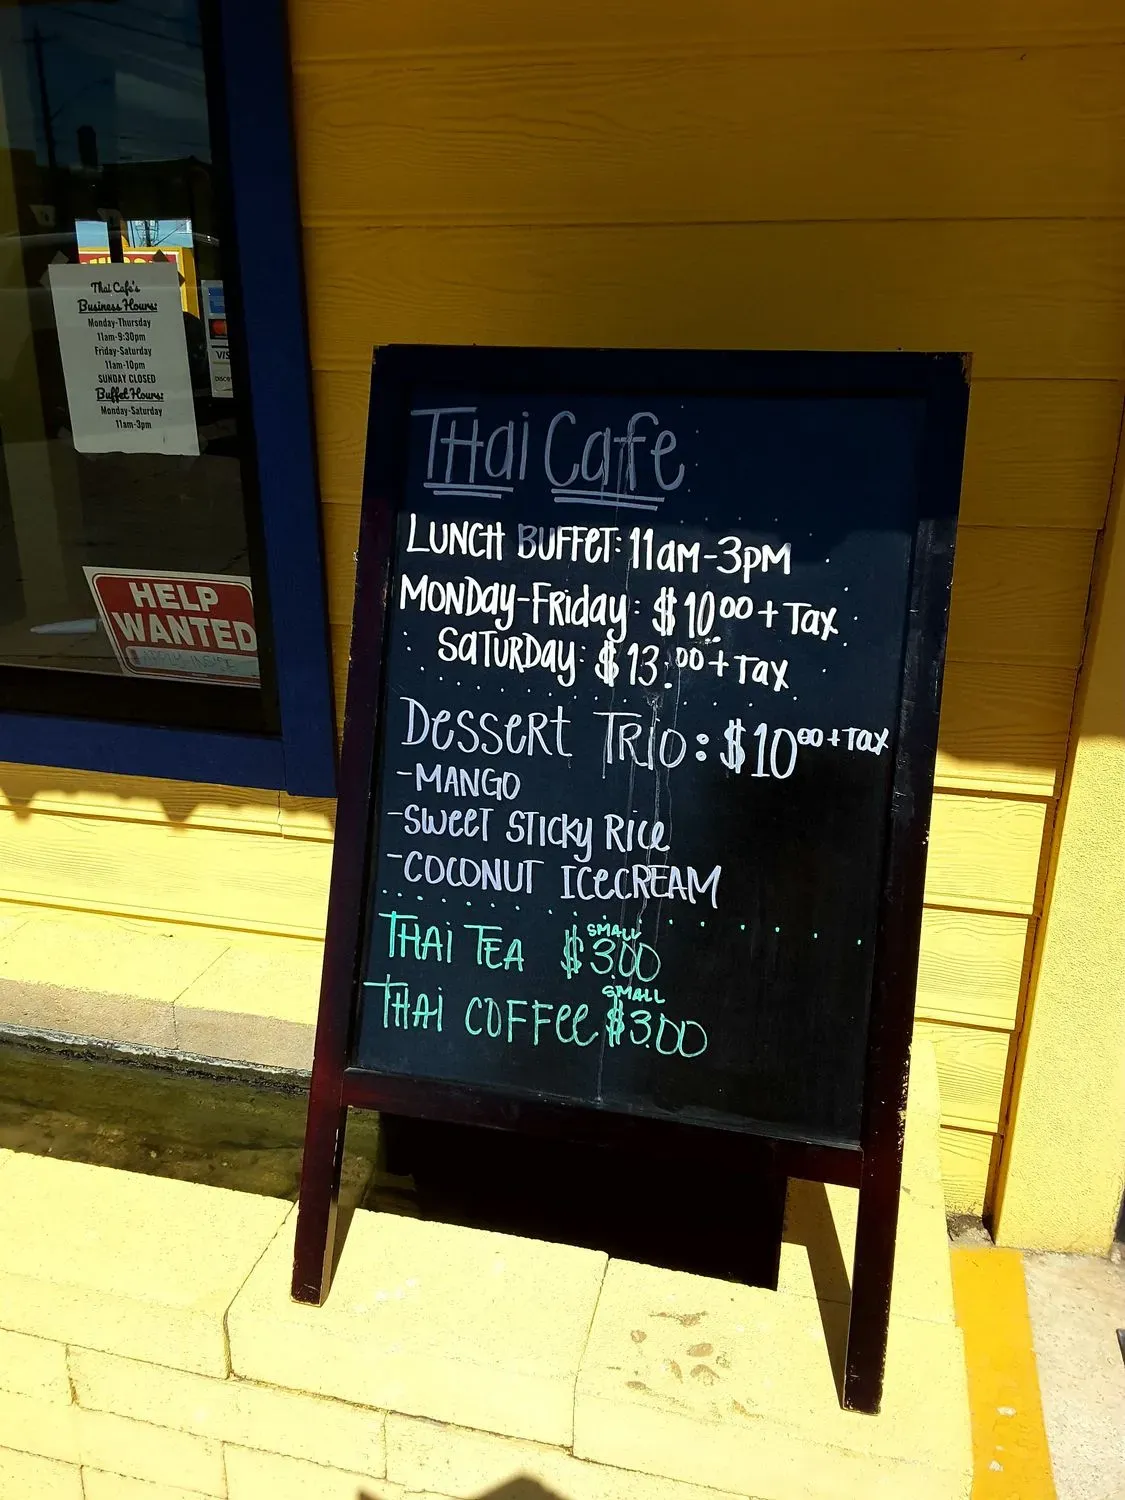 Thai Cafe's
Business Hours:
Monday-Thursday
11am-9:30pm
Friday-Saturday
11am-10pm
SUNDAY CLOSED
Buffet Hours:
Monday-Saturday
11am-3pm
VIS
DISCOV
HELP
WANTED
APPLY INSIDE
THai Cafe
LUNCH BUFFeT: 11am-3pm
MONDay-FRiday: $10.00 + Tax
SaTURDay: $13.00 + Tax
DesseRt TRio: $10.00 + Tax
-MANGO
-Sweet Sticky Rice
-COCONUT IceCREAM
THAi TEA $3.00 SMALL
THAi COFFee $3.00 SMALL